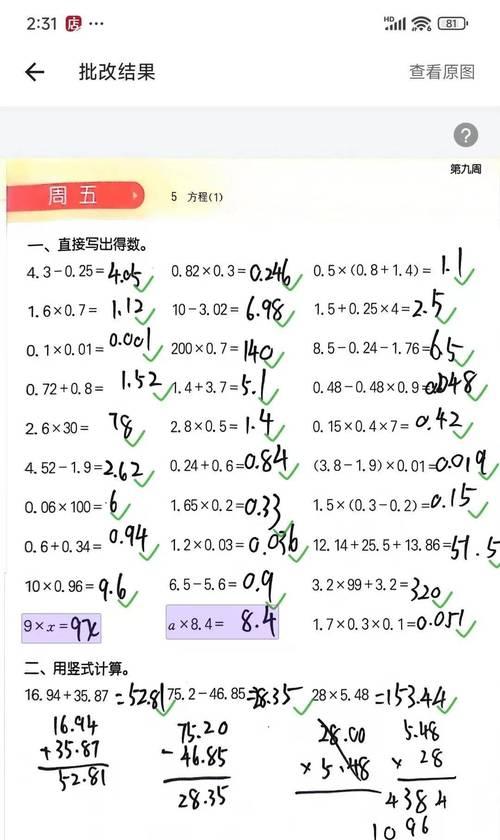 2:31 店 ··· HD 81
批改结果 查看原图
?
第九周
周五 5 方程(1)
一、直接写出得数。
4.3-0.25=4.05 0.82×0.3=0.246 0.5×(0.8+1.4)=1.1
1.6×0.7=1.12 10-3.02=6.98 1.5+0.25×4=2.5
0.1×0.01=0.001 200×0.7=140 8.5-0.24-1.76=6.5
0.72+0.8=1.52 1.4+3.7=5.1 0.48-0.48×0.9=0.048
2.6×30=78 2.8×0.5=1.4 0.15×0.4×7=0.42
4.52-1.9=2.62 0.24+0.6=0.84 (3.8-1.9)×0.01=0.019
0.06×100=6 1.65×0.2=0.33 1.5×(0.3-0.2)=0.15
0.6+0.34=0.94 1.2×0.03=0.036 12.14+25.5+13.86=51.5
10×0.96=9.6 6.5-5.6=0.9 3.2×99+3.2=320
9×x=9x a×8.4=8.4 1.7×0.3×0.1=0.051
二、用竖式计算。
16.94+35.87=52.81 75.2-46.85=28.35 28×5.48=153.44
16.94 75.20 28.00 5.48
+35.87 -46.85 ×5.48 ×28
52.81 28.35 4384
1096